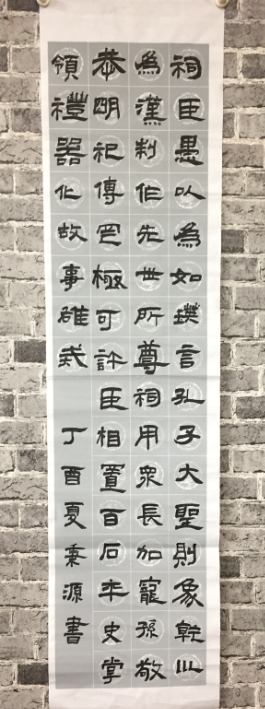 祠臣愚以為如瑛言孔子大聖則象乾巛
為漢制作先世所尊祠用衆長加寵孫敬
恭明祀傳罔極可許臣相置百石卒史掌
領禮器化故事雄戒
丁酉夏秉源書